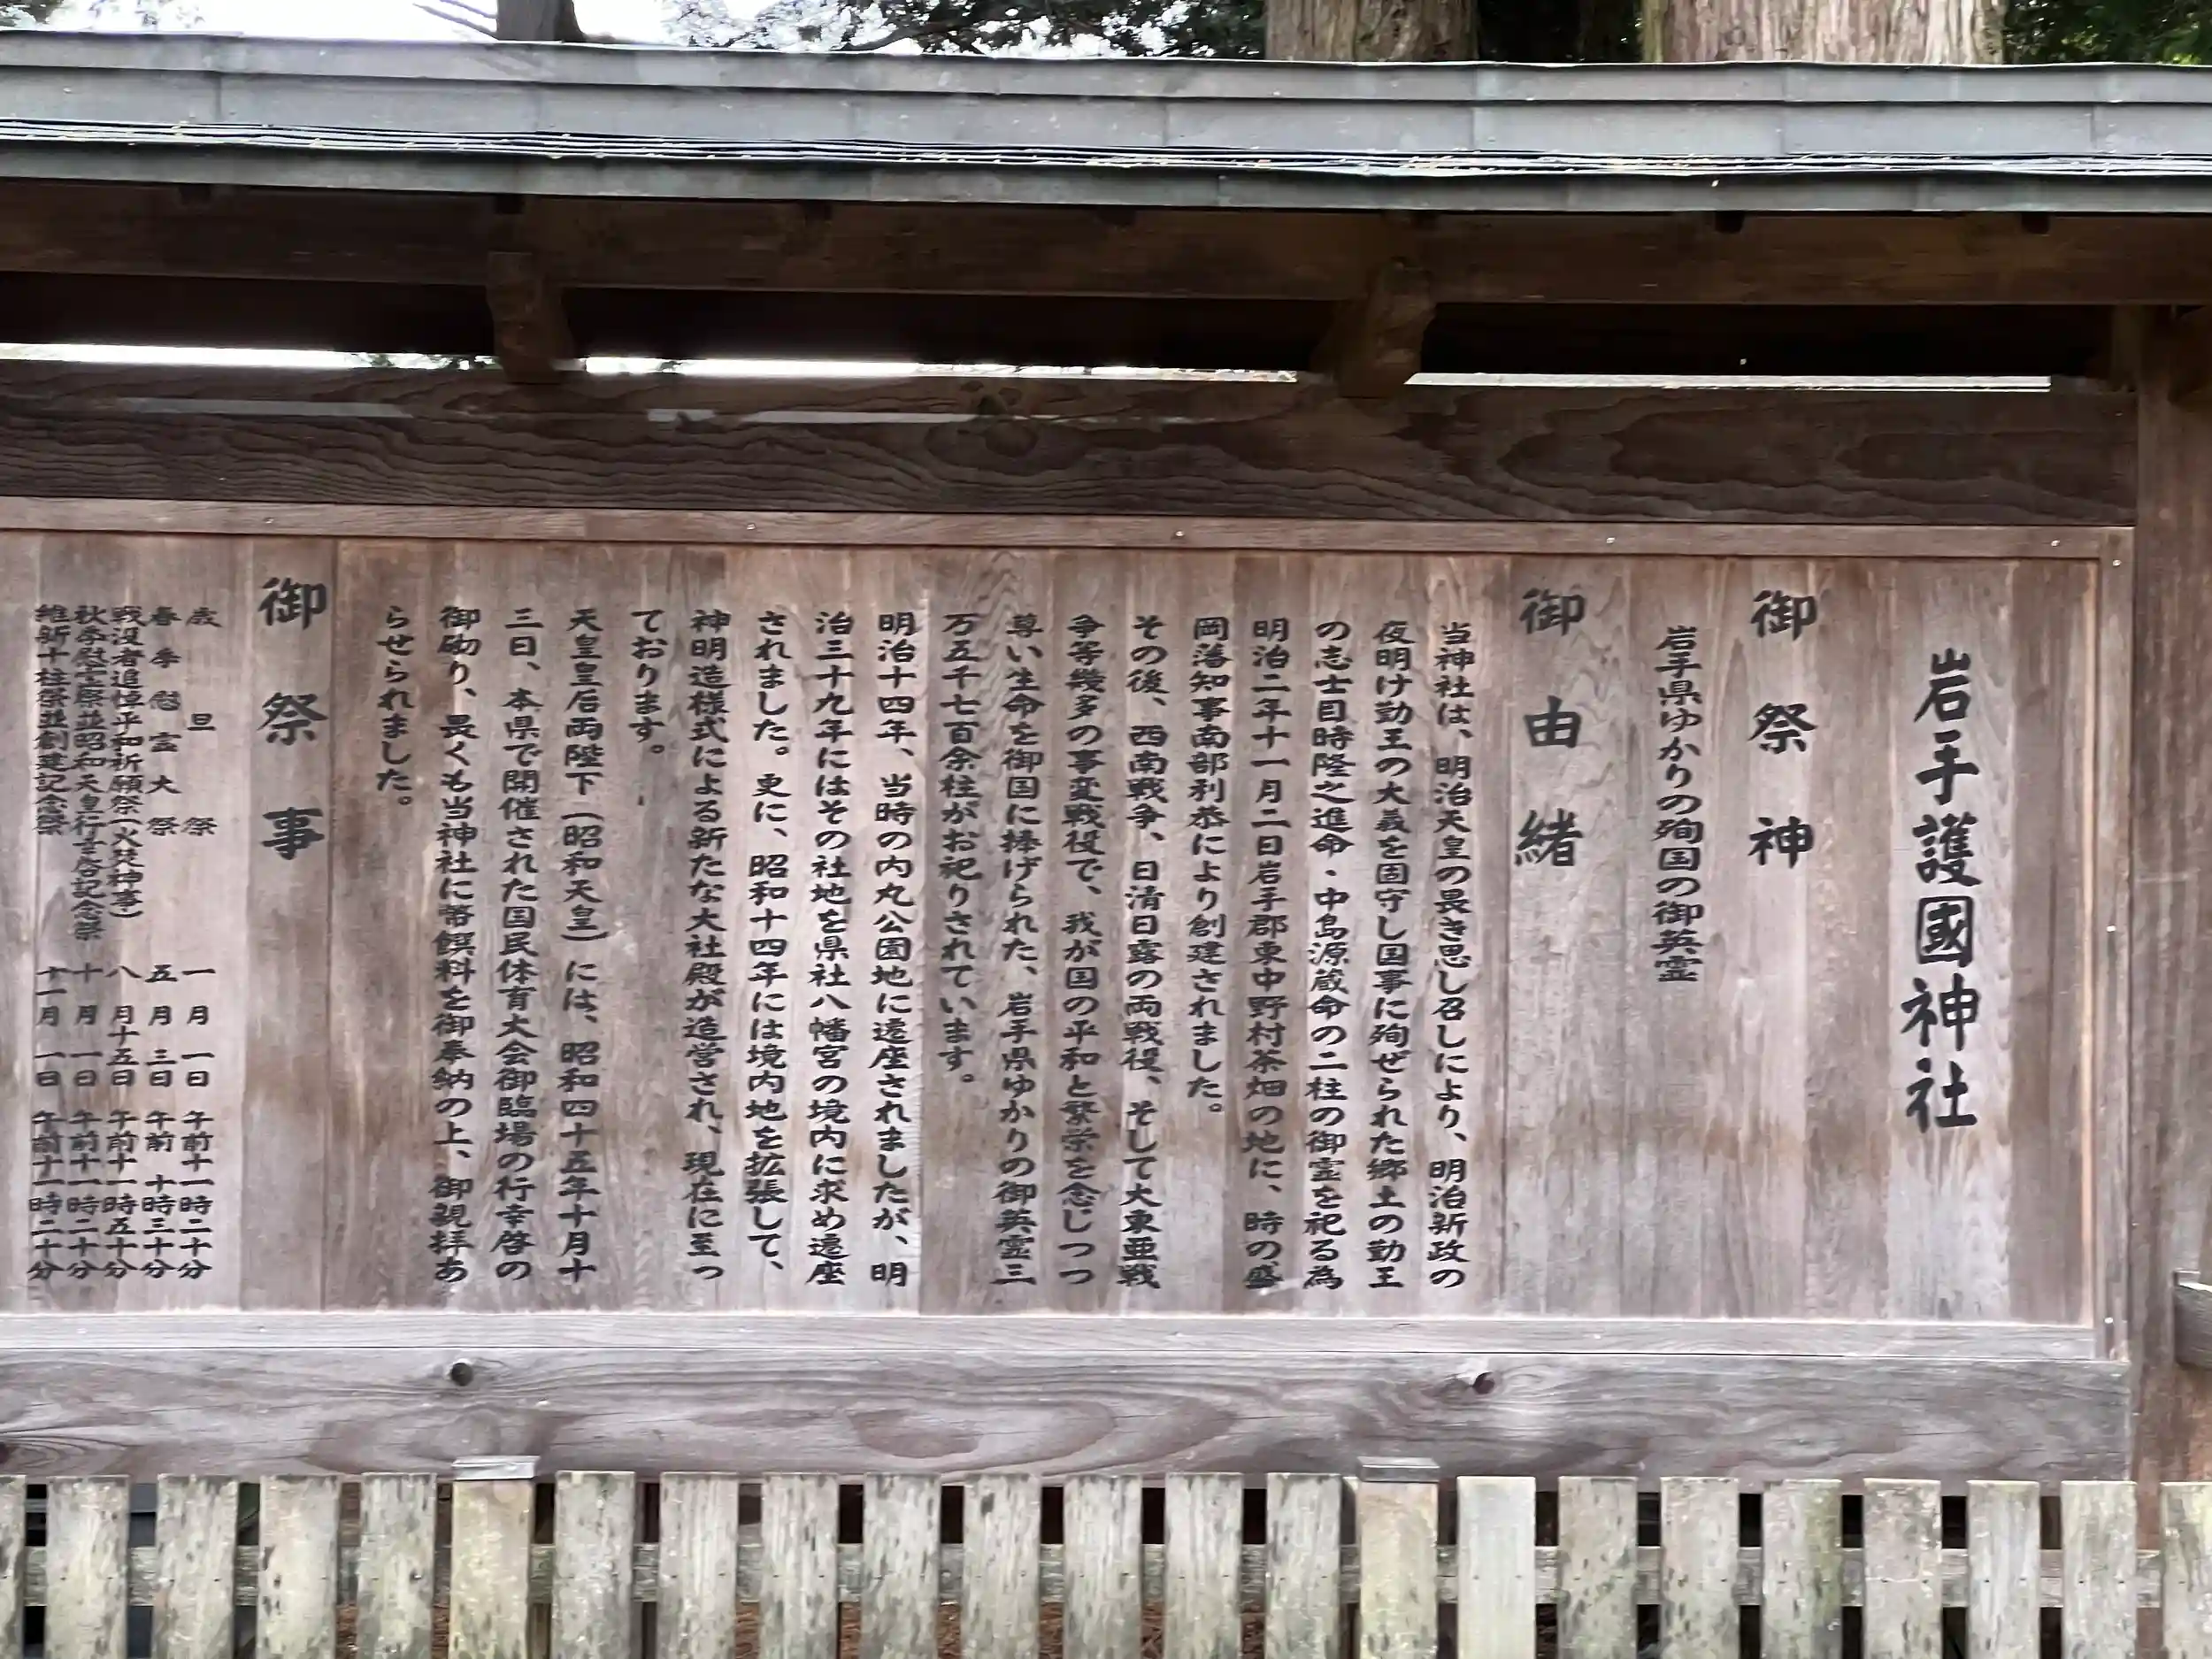 岩手護國神社
御祭神
岩手県ゆかりの殉国の御英霊
御由緒
当神社は、明治天皇の畏き思し召しにより、明治新政の
夜明け勤王の大義を固守し国事に殉ぜられた郷土の勤王
の志士目時隆之進命・中島源蔵命の二柱の御霊を祀る為
明治二年十一月二日岩手郡東中野村茶畑の地に、時の盛
岡藩知事南部利恭により創建されました。
その後、西南戦争、日清日露の両戦役、そして大東亜戦
争等幾多の事変戦役で、我が国の平和と繁栄を念じつつ
尊い生命を御国に捧げられた、岩手県ゆかりの御英霊三
万五千七百余柱がお祀りされています。
明治十四年、当時の内丸公園地に遷座されましたが、明
治三十九年にはその社地を県社八幡宮の境内に求め遷座
されました。更に、昭和十四年には境内地を拡張して、
神明造様式による新たな大社殿が造営され、現在に至っ
ております。
天皇皇后両陛下（昭和天皇）には、昭和四十五年十月十
三日、本県で開催された国民体育大会御臨場の行幸啓の
御砌り、畏くも当神社に幣饌料を御奉納の上、御親拝あ
らせられました。
御祭事
歳旦祭 一月一日 午前十一時二十分
春季慰霊大祭 五月三日 午前十時三十分
戦没者追悼平和祈願祭（火焚神事） 八月十五日 午前十一時五十分
秋季慰霊祭並昭和天皇行幸啓記念祭 十月一日 午前十一時二十分
維新十柱祭並創建記念祭 十一月一日 午前十一時二十分